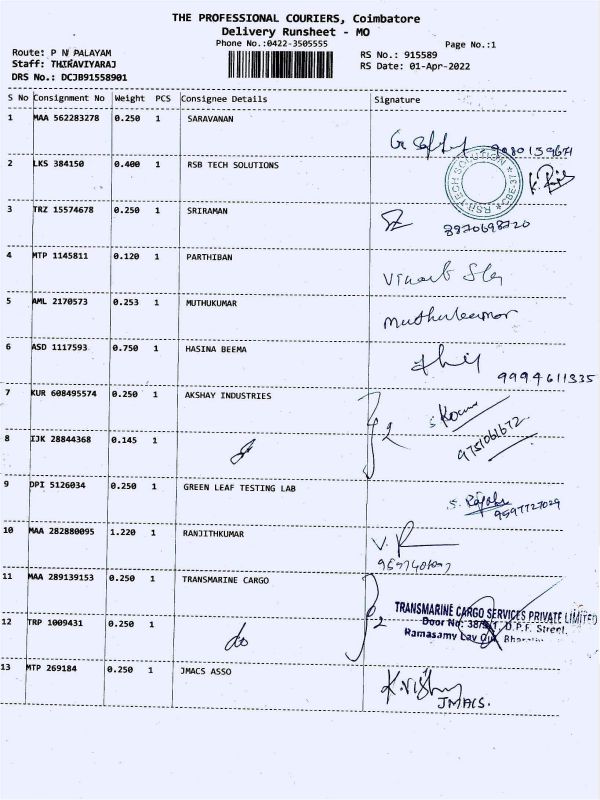 THE PROFESSIONAL COURIERS, Coimbatore
Delivery Runsheet - MO
Phone No.:0422-3505555
Page No.:1
Route: P N PALAYAM
Staff: THIRAVIYARAJ
DRS No.: DCJB91558901
RS No.: 915589
RS Date: 01-Apr-2022
S No Consignment No Weight PCS Consignee Details Signature
1 MAA 562283278 0.250 1 SARAVANAN
2 LKS 384150 0.400 1 RSB TECH SOLUTIONS
RSB TECH SOLUTION
3 TRZ 15574678 0.250 1 SRIRAMAN
8870698720
4 MTP 1145811 0.120 1 PARTHIBAN
5 AML 2170573 0.253 1 MUTHUKUMAR
6 ASD 1117593 0.750 1 HASINA BEEMA
9994611335
7 KUR 608495574 0.250 1 AKSHAY INDUSTRIES
2
9751061672
8 IJK 28844368 0.145 1
do
9 DPI 5126034 0.250 1 GREEN LEAF TESTING LAB
9597727029
10 MAA 282880095 1.220 1 RANJITHKUMAR
11 MAA 289139153 0.250 1 TRANSMARINE CARGO
2
TRANSMARINE CARGO SERVICES PRIVATE LIMITED
Door No: D.P.F. Street,
Ramasamy Lay
12 TRP 1009431 0.250 1
do
13 MTP 269184 0.250 1 JMACS ASSO
K.Vishnu
JMACS.